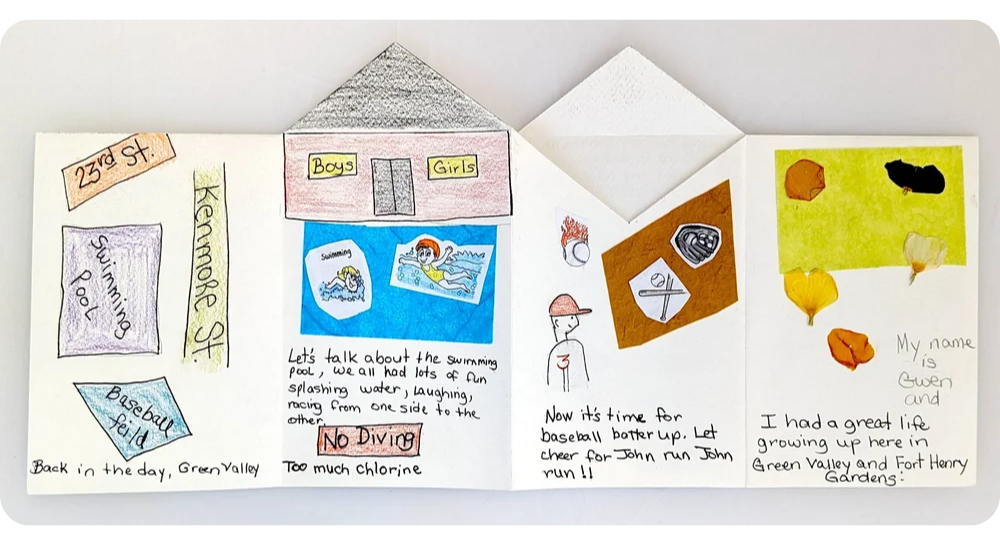 23rd St.
Kenmoke St
Swimming
Pool
Baseball
feild
Back in the day, Green Valley
Boys
Girls
Swimming
Let's talk about the swimming
pool, we all had lots of fun
splashing water, laughing,
racing from one side to the
other.
No Diving
Too much chlorine
3
Now it's time for
baseball batter up. Let
cheer for John run John
run!!
My name
is
Gwen
and
I had a great life
growing up here in
Green Valley and Fort Henry
Gardens.